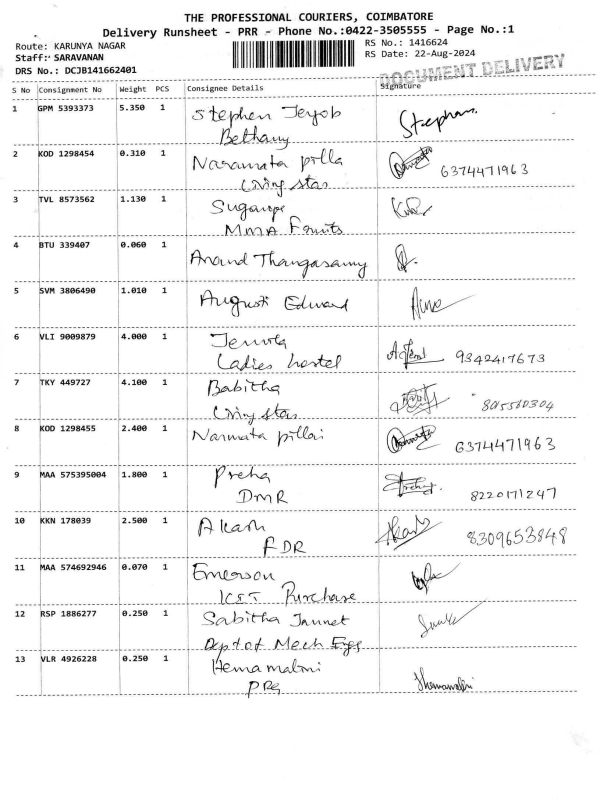 THE PROFESSIONAL COURIERS, COIMBATORE
Delivery Runsheet - PRR - Phone No.:0422-3505555 - Page No.:1
Route: KARUNYA NAGAR
Staff: SARAVANAN
DRS No.: DCJB141662401
RS No.: 1416624
RS Date: 22-Aug-2024
DOCUMENT DELIVERY
S No Consignment No Weight PCS Consignee Details Signature
1 GPM 5393373 5.350 1 Stephen Jeyob Stephen
Bethany
2 KOD 1298454 0.310 1 Naramata pilla 6374471963
Living star
3 TVL 8573562 1.130 1
MMA Fruits
4 BTU 339407 0.060 1 Anand Thangasamy
5 SVM 3806490 1.010 1 Augusti Edward
6 VLI 9009879 4.000 1 9342417673
Ladies hostel
7 TKY 449727 4.100 1 Babitha
Living star
8 KOD 1298455 2.400 1 Narmata pillai 6374471963
9 MAA 575395004 1.800 1 Preha 8220171247
DMR
10 KKN 178039 2.500 1 Akash 8309653848
FDR
11 MAA 574692946 0.070 1 Emerson
Purchase
12 RSP 1886277 0.250 1 Sabitha Jannet
Dept of Mech Egg
13 VLR 4926228 0.250 1 Hemamalini Hemamalini